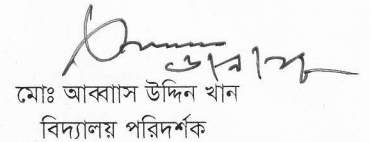 মোঃ আব্বাস উদ্দিন খান
বিদ্যালয় পরিদর্শক